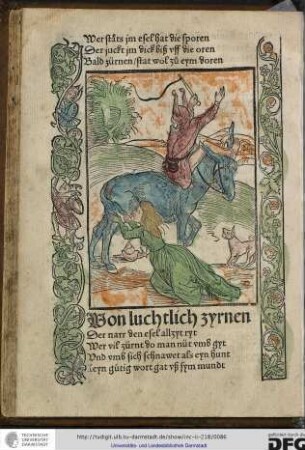 Wer stäts jm esel hat die sporen
Der juckt jm dick biß vff die oren
Bald zürnen/stat wol zů eym doren
Von luchtlich zyrnen
Der narr den esel allzyt ryt
Wer vil zürnt do man nüt vmb gyt
Vnd vmb sich schnawet als eyn hunt
Keyn gütig wort gat vß sym mundt
TECHNISCHE UNIVERSITÄT DARMSTADT
http://tudigit.ulb.tu-darmstadt.de/show/inc-iv-218/0086
Universitäts- und Landesbibliothek Darmstadt
gefördert durch die
DFG